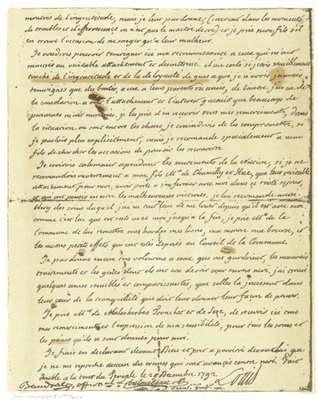 montrés de l'ingratitude, mais je leur pardonne, (souvent dans les moments
de troubles et d'effervescence on n'est pas le maître de soi) et je prie mon fils s'il
en trouve l'occasion de ne songer qu'à leur malheur.
Je voudrois pouvoir témoigner ici ma reconnoissance à ceux qui m'ont
montrés un véritable attachement et désintéressé. d'un coté si j'étois sensiblement
touché de l'ingratitude et de la déloyauté de gens à qui je n'avois jamais
témoignés que des bontés, à eux à leurs parents ou amis, de l'autre, j'ai eu de
la consolation à voir l'attachement et l'intérest gratuit que beaucoup de
personnes m'ont montrés, je les prie d'en recevoir tous mes remerciments, dans
la situation, ou sont encore les choses, je craindrois de les compromettre, si
je parlois plus explicitement, mais je recommande spécialement à mon
fils de chercher les occasions de pouvoir les reconnoitre.
Je croirois calomnier cependant les sentiments de la Nation, si je ne
recommandois ouvertement à mon fils Mrs de Chamilly et Hue, que leur véritable
attachement pour moi, avoit porté à s'enfermer avec moi dans ce triste séjour,
et qui ont pensés en être les malheureuses victimes, je lui recommande aussi
Clery des soins duquel j'ai eu tout lieu de me louer depuis qu'il est avec moi,
comme c'est lui qui est resté avec moi jusqu'à la fin, je prie Mrs de la
Commune de lui remettre mes hardes mes livres, ma montre ma bourse, et
les autres petits effets qui ont étés déposés au Conseil de la Commune.
Je pardonne encore très volontiers a ceux qui me gardoient, les mauvais
traitements et les gestes dont ils ont cru devoir user envers moi, j'ai trouvé
quelques ames sensibles et compatissantes, que celles là jouissent dans
leur cœur de la tranquillité que doit leur donner leur façon de penser.
Je prie Mrs de Malesherbes Tronchet et de Seze, de recevoir ici tous
mes remerciments et l'expression de ma sensibilité, pour tous les soins et
les peines qu'ils se sont donnés pour moi.
Je finis en déclarant devant Dieu et prêt à paroitre devant lui que
je ne me reproche aucun des crimes qui sont avancés contre moi. Fait
double à la Tour du Temple le 25 Décembre 1792.
Louis